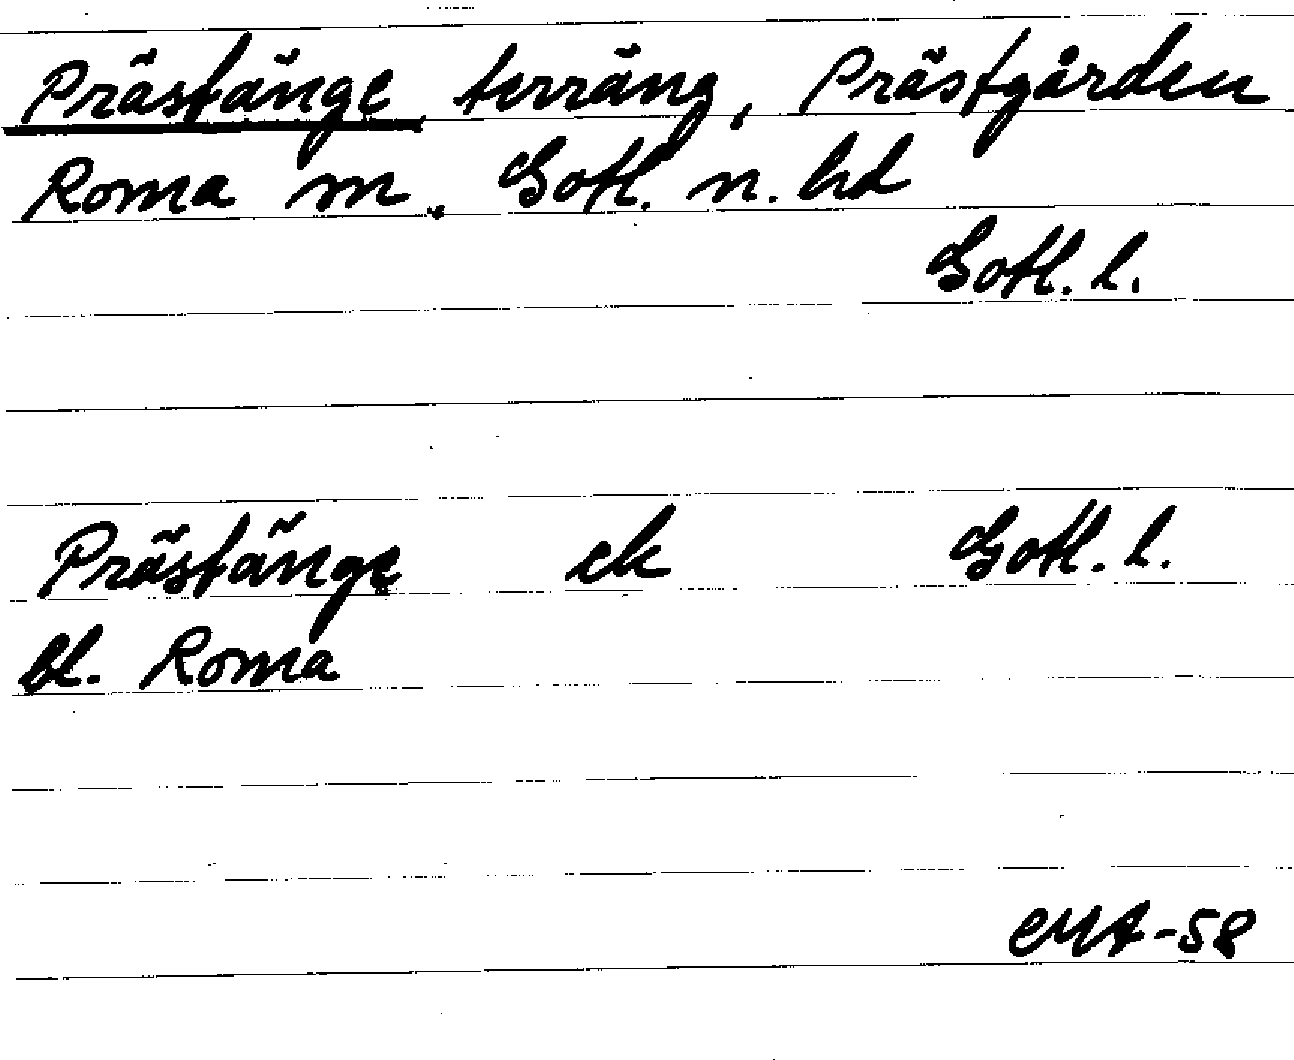 Prästänge terräng, Prästgården
Roma sn. Gotl. n. hd
Gotl. l.
Prästänge ek Gotl. l.
bl. Roma
EMA-58